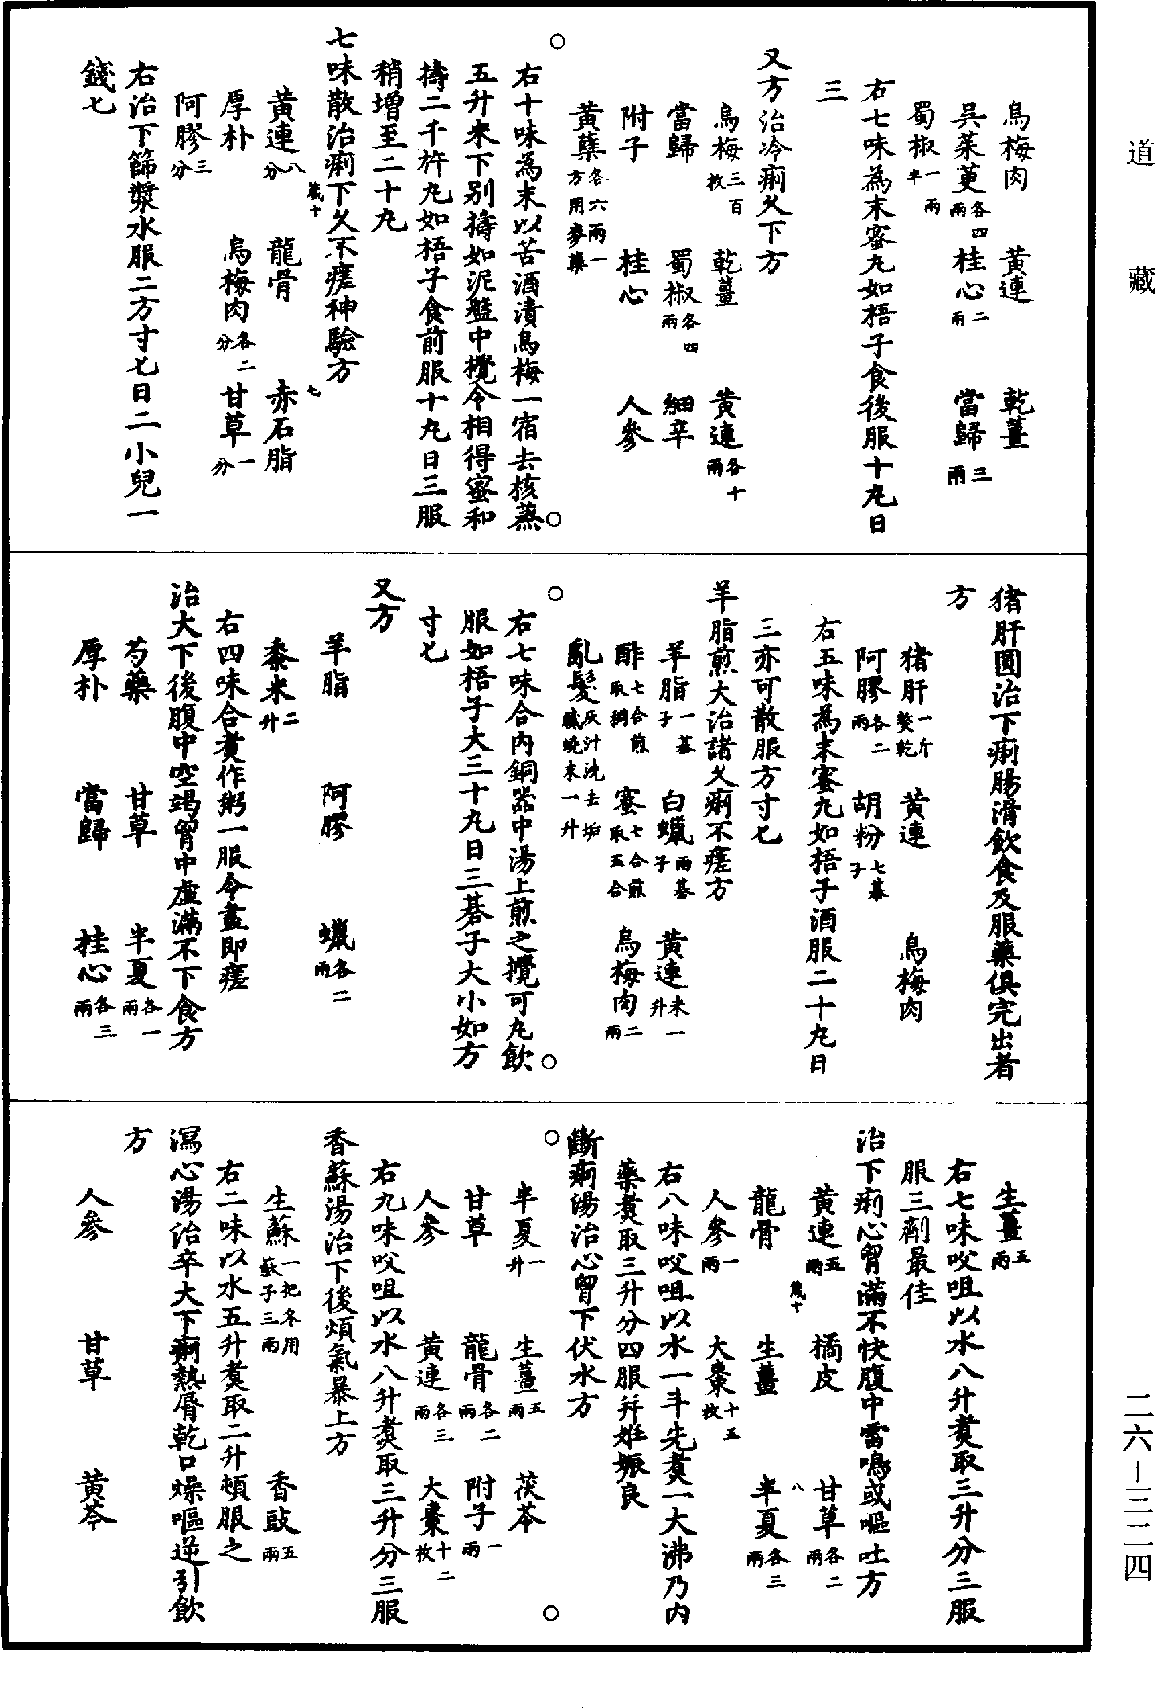 道藏
烏梅肉 黃連 乾薑
吳茱萸各四兩 桂心二兩 當歸三兩
蜀椒一兩半
右七味為末蜜丸如梧子食後服十丸日
三
又方治冷痢久下方
烏梅三百枚 乾薑 黃連各十兩
當歸 蜀椒各四兩 細辛
附子 桂心 人參
黃蘗各六兩一方用麥蘗
右十味為末以苦酒漬烏梅一宿去核蒸
五升米下別擣如泥盤中攪令相得蜜和
擣二千杵丸如梧子食前服十丸日三服
稍增至二十丸
七味散治痢下久不瘥神驗方
黃連八分 龍骨 赤石脂
厚朴 烏梅肉各二分 甘草一分
阿膠三分
歲十 七
右治下篩漿水服二方寸匕日二小兒一
錢匕
猪肝圓治下痢腸滑飲食及服藥俱完出者
方
猪肝一斤熬乾 黃連 烏梅肉
阿膠各二兩 胡粉七碁子
右五味為末蜜丸如梧子酒服二十丸日
三亦可散服方寸匕
羊脂煎大治諸久痢不瘥方
羊脂一碁子 白蠟兩碁子 黃連末一升
酢七合煎取稠 蜜七合煎取五合 烏梅肉二兩
亂髮灰汁洗去垢膩燒末一升
右七味合內銅器中湯上煎之攪可丸飲
服如梧子大三十丸日三碁子大小如方
寸匕
又方
羊脂 阿膠 蠟各二兩
黍米二升
右四味合煑作粥一服令盡即瘥
治大下後腹中空竭胷中虛滿不下食方
芍藥 甘草 半夏各一兩
厚朴 當歸 桂心各三兩
生薑五兩
右七味㕮咀以水八升煑取三升分三服
服三劑最佳
治下痢心胷滿不快腹中雷鳴或嘔吐方
黃連五兩 橘皮 甘草各二兩
龍骨 生薑 半夏各三兩
人參一兩 大棗十五枚
歲十 八
右八味㕮咀以水一斗先煑一大沸乃內
藥煑取三升分四服并妊娠良
斷痢湯治心胷下伏水方
半夏一升 生薑五兩 茯苓
甘草 龍骨各二兩 附子一兩
人參 黃連各三兩 大棗十二枚
右九味㕮咀以水八升煑取三升分三服
香蘇湯治下後煩氣暴上方
生蘇一把冬用蘇子三兩 香豉五兩
右二味以水五升煑取二升頓服之
瀉心湯治卒大下痢熱脣乾口燥嘔逆引飲
方
人參 甘草 黃芩
二六—三二四